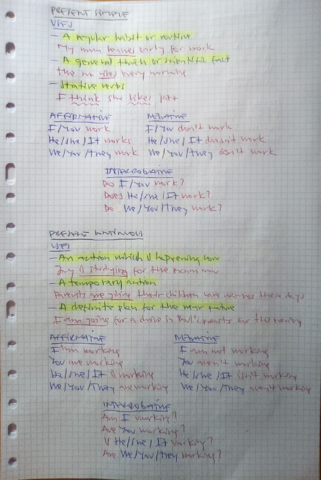 PRESENT SIMPLE
USES
- A regular habit or routine
My mum leaves early for work
- A general truth or scientific fact
The sun rises every morning
- Stative verbs
I think she likes
AFFIRMATIVE NEGATIVE
I/You work I/You don't work
He/She/It works He/She/It doesn't work
We/You/They work We/You/They don't work
INTERROGATIVE
Do I/You work?
Does He/She/It work?
Do We/You/They work?
PRESENT CONTINUOUS
USES
- An action which is happening now
is studying for the exam now
- A temporary action
Parents are giving their children these days
- A definite plan for the near future
I am going for a drive in this evening
AFFIRMATIVE NEGATIVE
I am working I am not working
You are working You aren't working
He/She/It is working He/She/It isn't working
We/You/They are working We/You/They aren't working
INTERROGATIVE
Am I working?
Are You working?
Is He/She/It working?
Are We/You/They working?